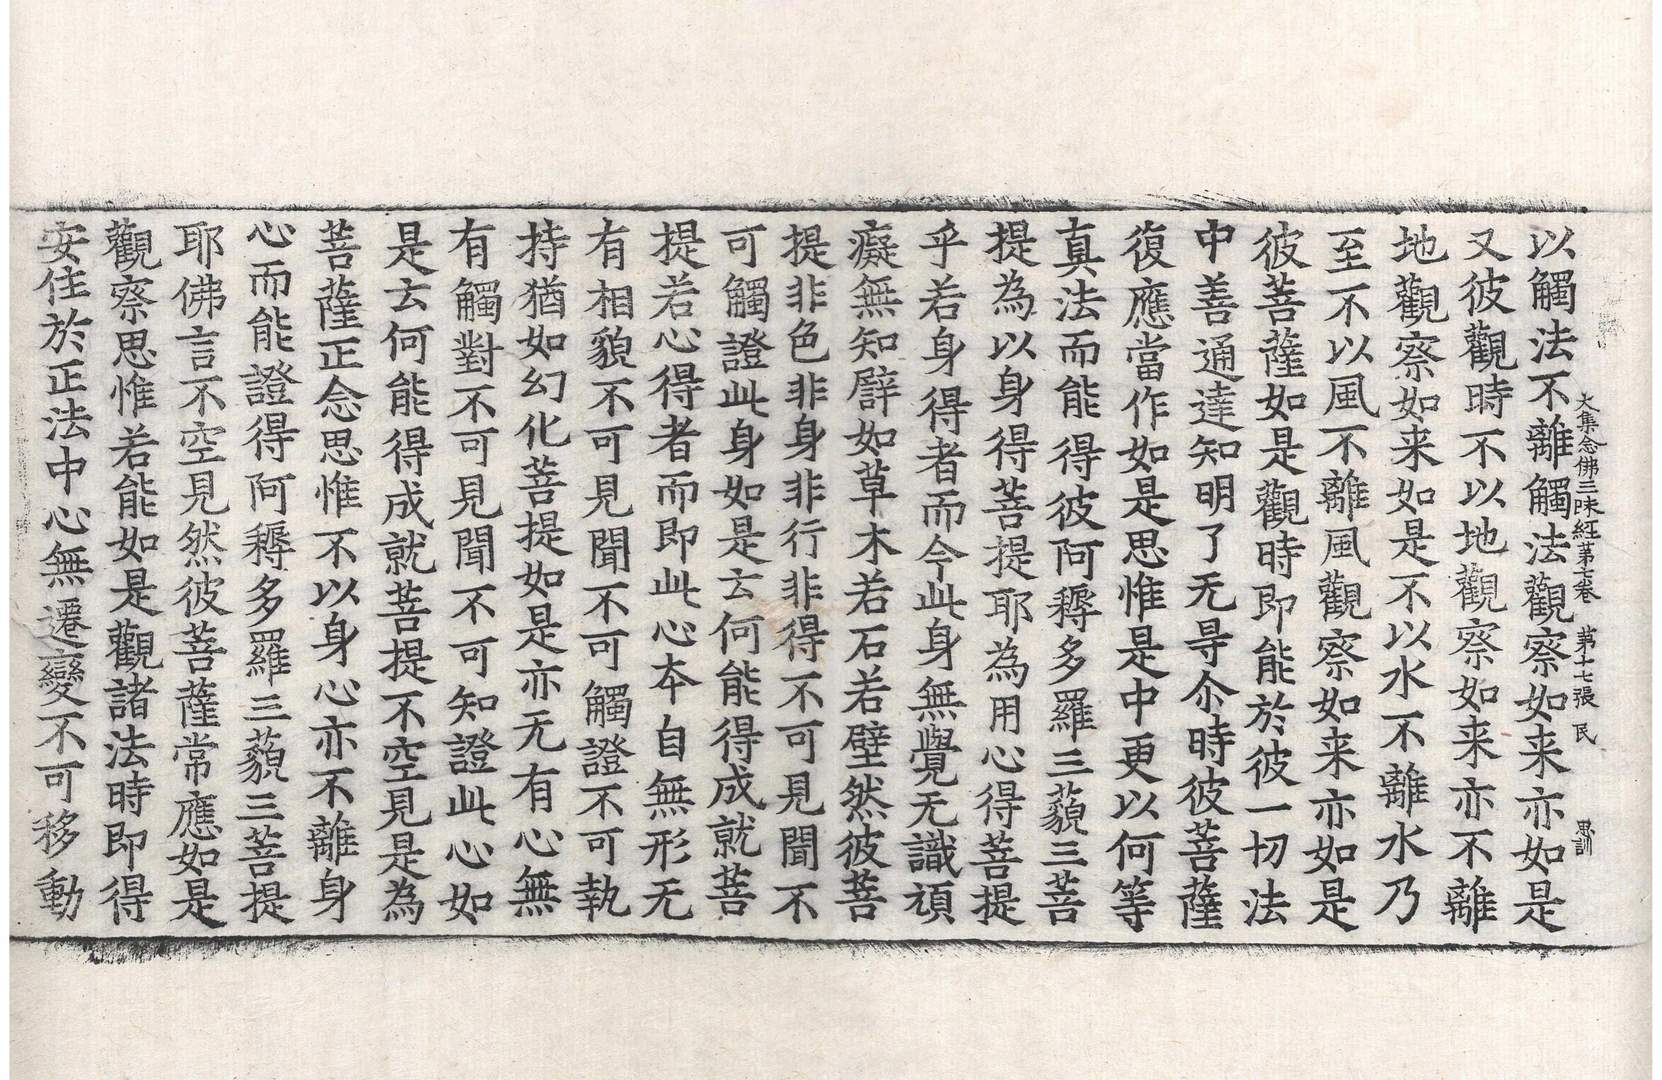 大集念佛三昧經苐七卷　苐十七張　民
以觸法不離觸法觀察如来亦如是
又彼觀時不以地觀察如来亦不離
地觀察如来如是不以水不離水乃
至不以風不離風觀察如来亦如是
彼菩薩如是觀時即能於彼一切法
中善通達知明了无㝵尒時彼菩薩
復應當作如是思惟是中更以何等
真法而能得彼阿耨多羅三藐三菩
提為以身得菩提耶為用心得菩提
乎若身得者而今此身無覺无識頑
癡無知譬如草木若石若壁然彼菩
提非色非身非行非得不可見聞不
可觸證此身如是云何能得成就菩
提若心得者而即此心夲自無形无
有相貌不可見聞不可觸證不可執
持猶如幻化菩提如是亦无有心無
有觸對不可見聞不可知證此心如
是云何能得成就菩提不空見是為
菩薩正念思惟不以身心亦不離身
心而能證得阿耨多羅三藐三菩提
耶佛言不空見然彼菩薩常應如是
觀察思惟若能如是觀諸法時即得
安住於正法中心無遷變不可移動